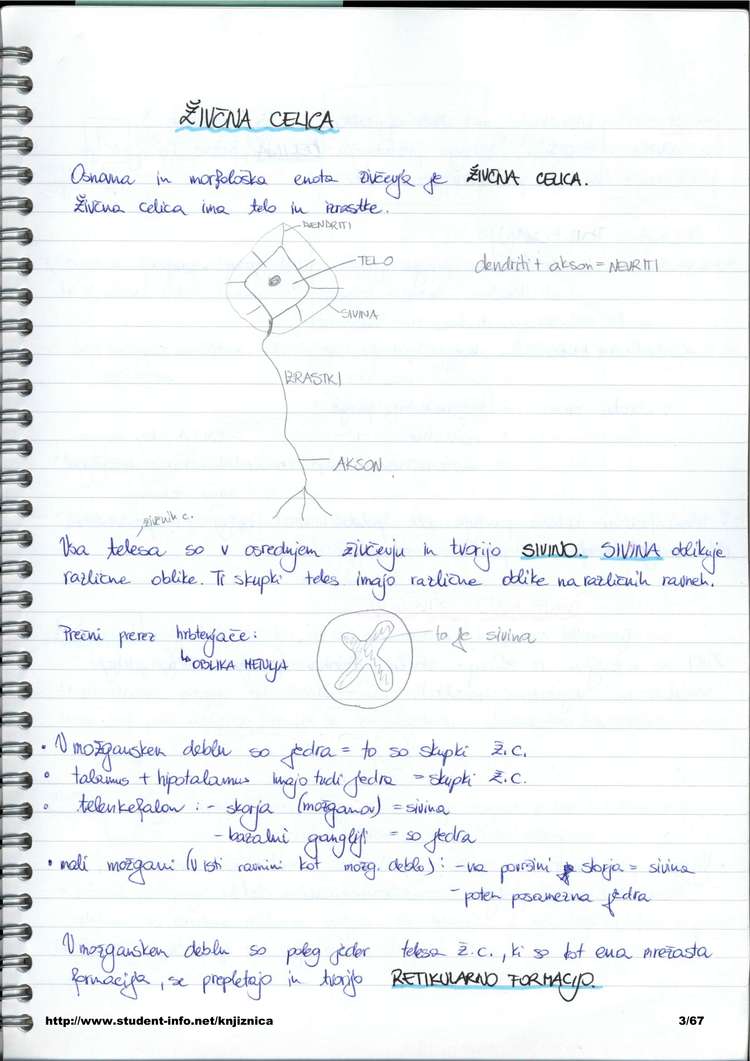 ŽIVČNA CELICA
Osnovna in morfološka enota živčevja je ŽIVČNA CELICA.
Živčna celica ima telo in izrastke.
DENDRITI
TELO
dendriti + akson = NEVRITI
SIVINA
IZRASTKI
AKSON
živčnih c.
Vsa telesa so v osrednjem živčevju in tvorijo SIVINO. SIVINA oblikuje
različne oblike. Ti skupki teles imajo različne oblike na različnih ravneh.
Prečni prerez hrbtenjače:
to je sivina
↳ OBLIKA METULJA
• V možganskem deblu so jedra = to so skupki ž.c.
• talamus + hipotalamus imajo tudi jedra = skupki ž.c.
• telenkefalon : - skorja (možganov) = sivina
- bazalni gangliji = so jedra
• mali možgani (v isti ravnini kot možg. deblo) : - na površini skorja = sivina
- potem posamezna jedra
V možganskem deblu so poleg jeder telesa ž.c., ki so kot ena mrežasta
formacija, se prepletajo in tvorijo RETIKULARNO FORMACIJO.
http://www.student-info.net/knjiznica 3/67